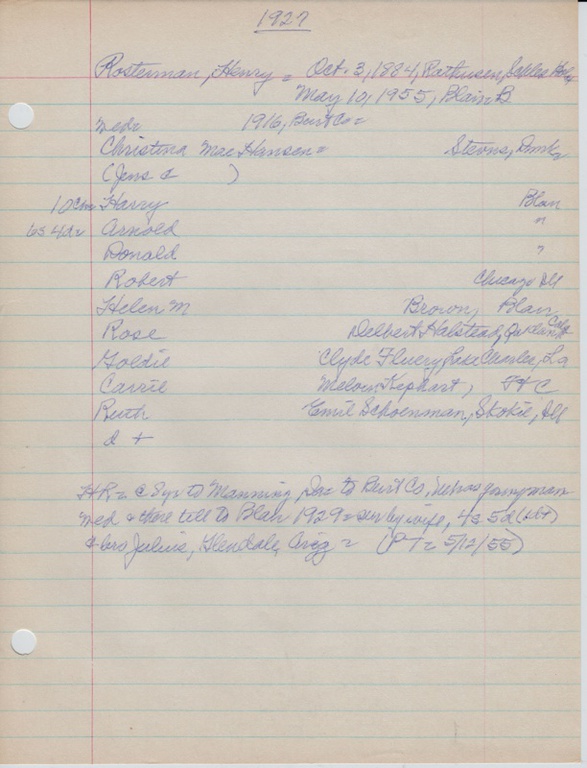 1927
Rosterman, Henry = Oct. 3, 1884, Rathusen,
May 10, 1955, Blair B
Med 1916, Burt Co =
Christina Mae Hansen = Stevns, Dmk
(Jens & )
10 Cm Harry Blair
6s 4ds Arnold "
Donald "
Robert Chicago Ill
Helen M Brown, Blair
Rose Delbert Halstead, Oakland Calif
Goldie Clyde Fluery, Lake Charles, La
Carrie Melvin Kephart, Ft C
Ruth Emil Schoenman, Skokie, Ill
d +
HR = @ 8 yr to Manning, Ia = to Burt Co, Neb as young man
Med & there till to Blair 1929 = sur by wife, 4s 5d (1d+)
& bro Julius, Glendale, Ariz = (PT = 5/12/55)